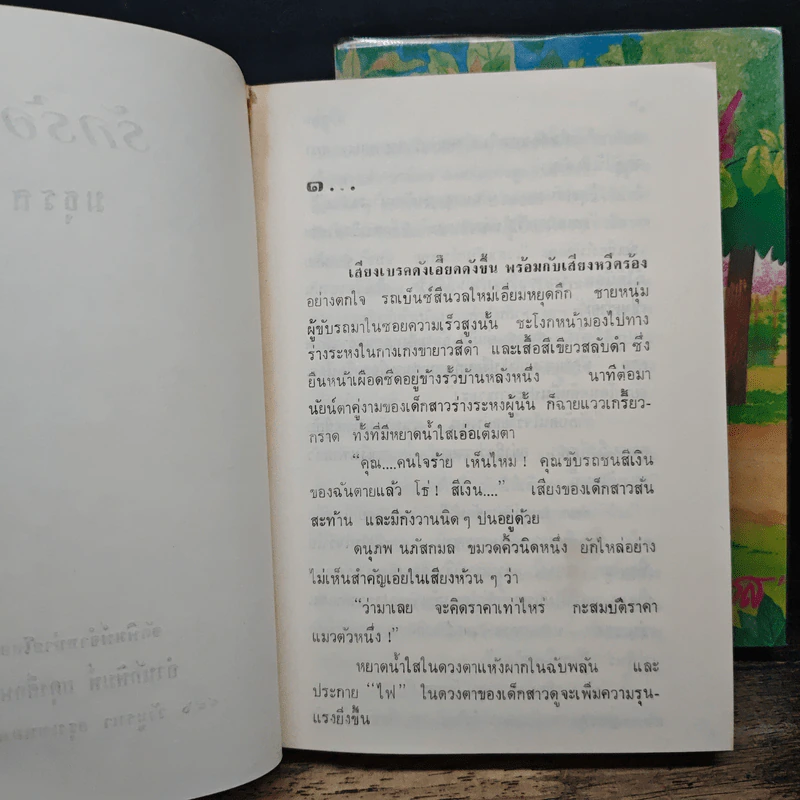 รักร้อ
มธุรส
๑...
เสียงเบรคดังเอี๊ยดดังขึ้น พร้อมกับเสียงหวีดร้อง
อย่างตกใจ รถเบ็นซ์สีนวลใหม่เอี่ยมหยุดกึก ชายหนุ่ม
ผู้ขับรถมาในซอยความเร็วสูงนั้น ชะโงกหน้ามองไปทาง
ร่างระหงในกางเกงขายาวสีดำ และเสื้อสีเขียวสลับดำ ซึ่ง
ยืนหน้าเผือดชิดอยู่ข้างรั้วบ้านหลังหนึ่ง นาทีต่อมา
นัยน์ตาคู่งามของเด็กสาวร่างระหงผู้นั้น ก็ฉายแววเกรี้ยว-
กราด ทั้งที่มีหยาดน้ำใสเอ่อเต็มตา
“คุณ....คนใจร้าย เห็นไหม ! คุณขับรถชนสีเงิน
ของฉันตายแล้ว โธ่ ! สีเงิน....” เสียงของเด็กสาวสั่น
สะท้าน และมีกังวานนิด ๆ ปนอยู่ด้วย
ดนุภพ นภัสกมล ขมวดคิ้วนิดหนึ่ง ยักไหล่อย่าง
ไม่เห็นสำคัญเอ่ยในเสียงห้วน ๆ ว่า
“ว่ามาเลย จะคิดราคาเท่าไหร่ กะสมบัติราคา
แมวตัวหนึ่ง !”
หยาดน้ำใสในดวงตาแห้งผากในฉับพลัน และ
ประกาย “ไฟ” ในดวงตาของเด็กสาวดูจะเพิ่มความรุน-
แรงยิ่งขึ้น